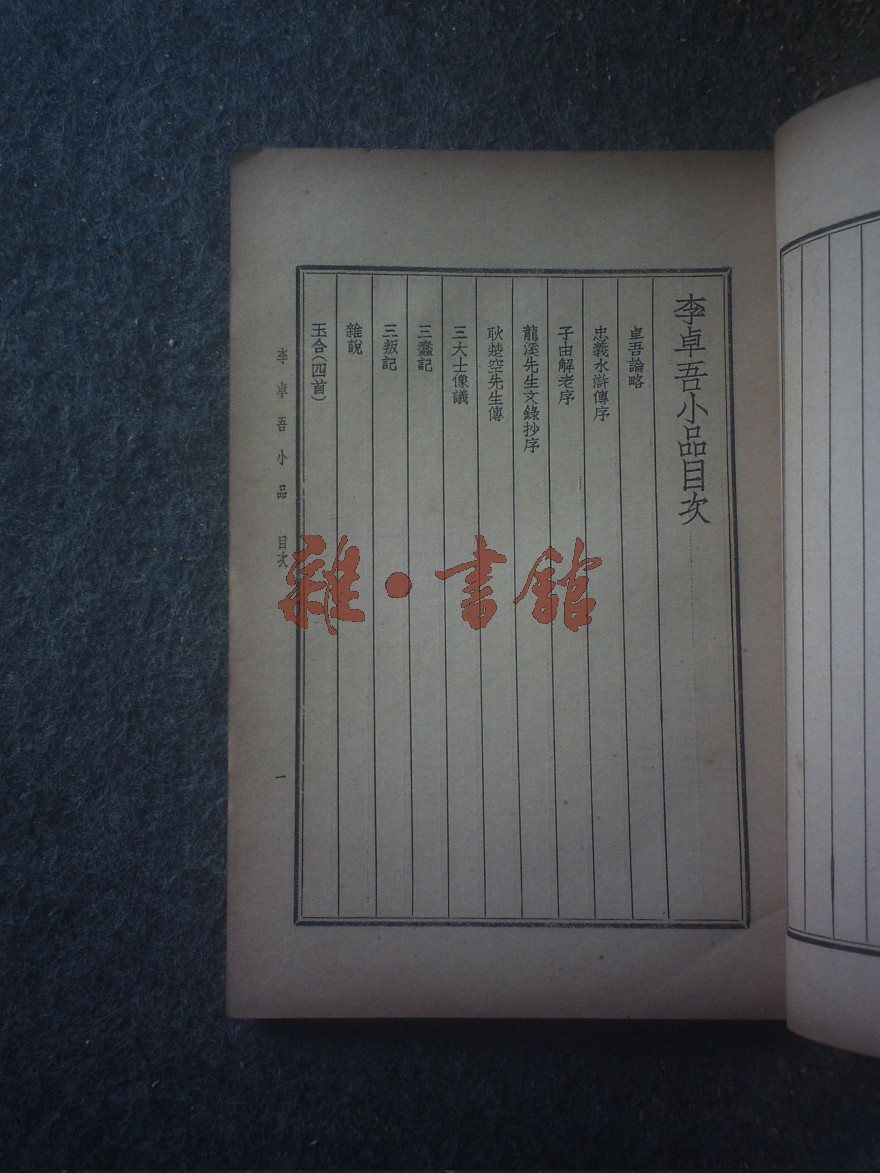 李卓吾小品目次
卓吾論略
忠義水滸傳序
子由解老序
龍溪先生文錄抄序
耿楚空先生傳
三大士像議
三蠢記
三叛記
雜說
玉合(四首)
李卓吾小品 目次
一
雜·書館